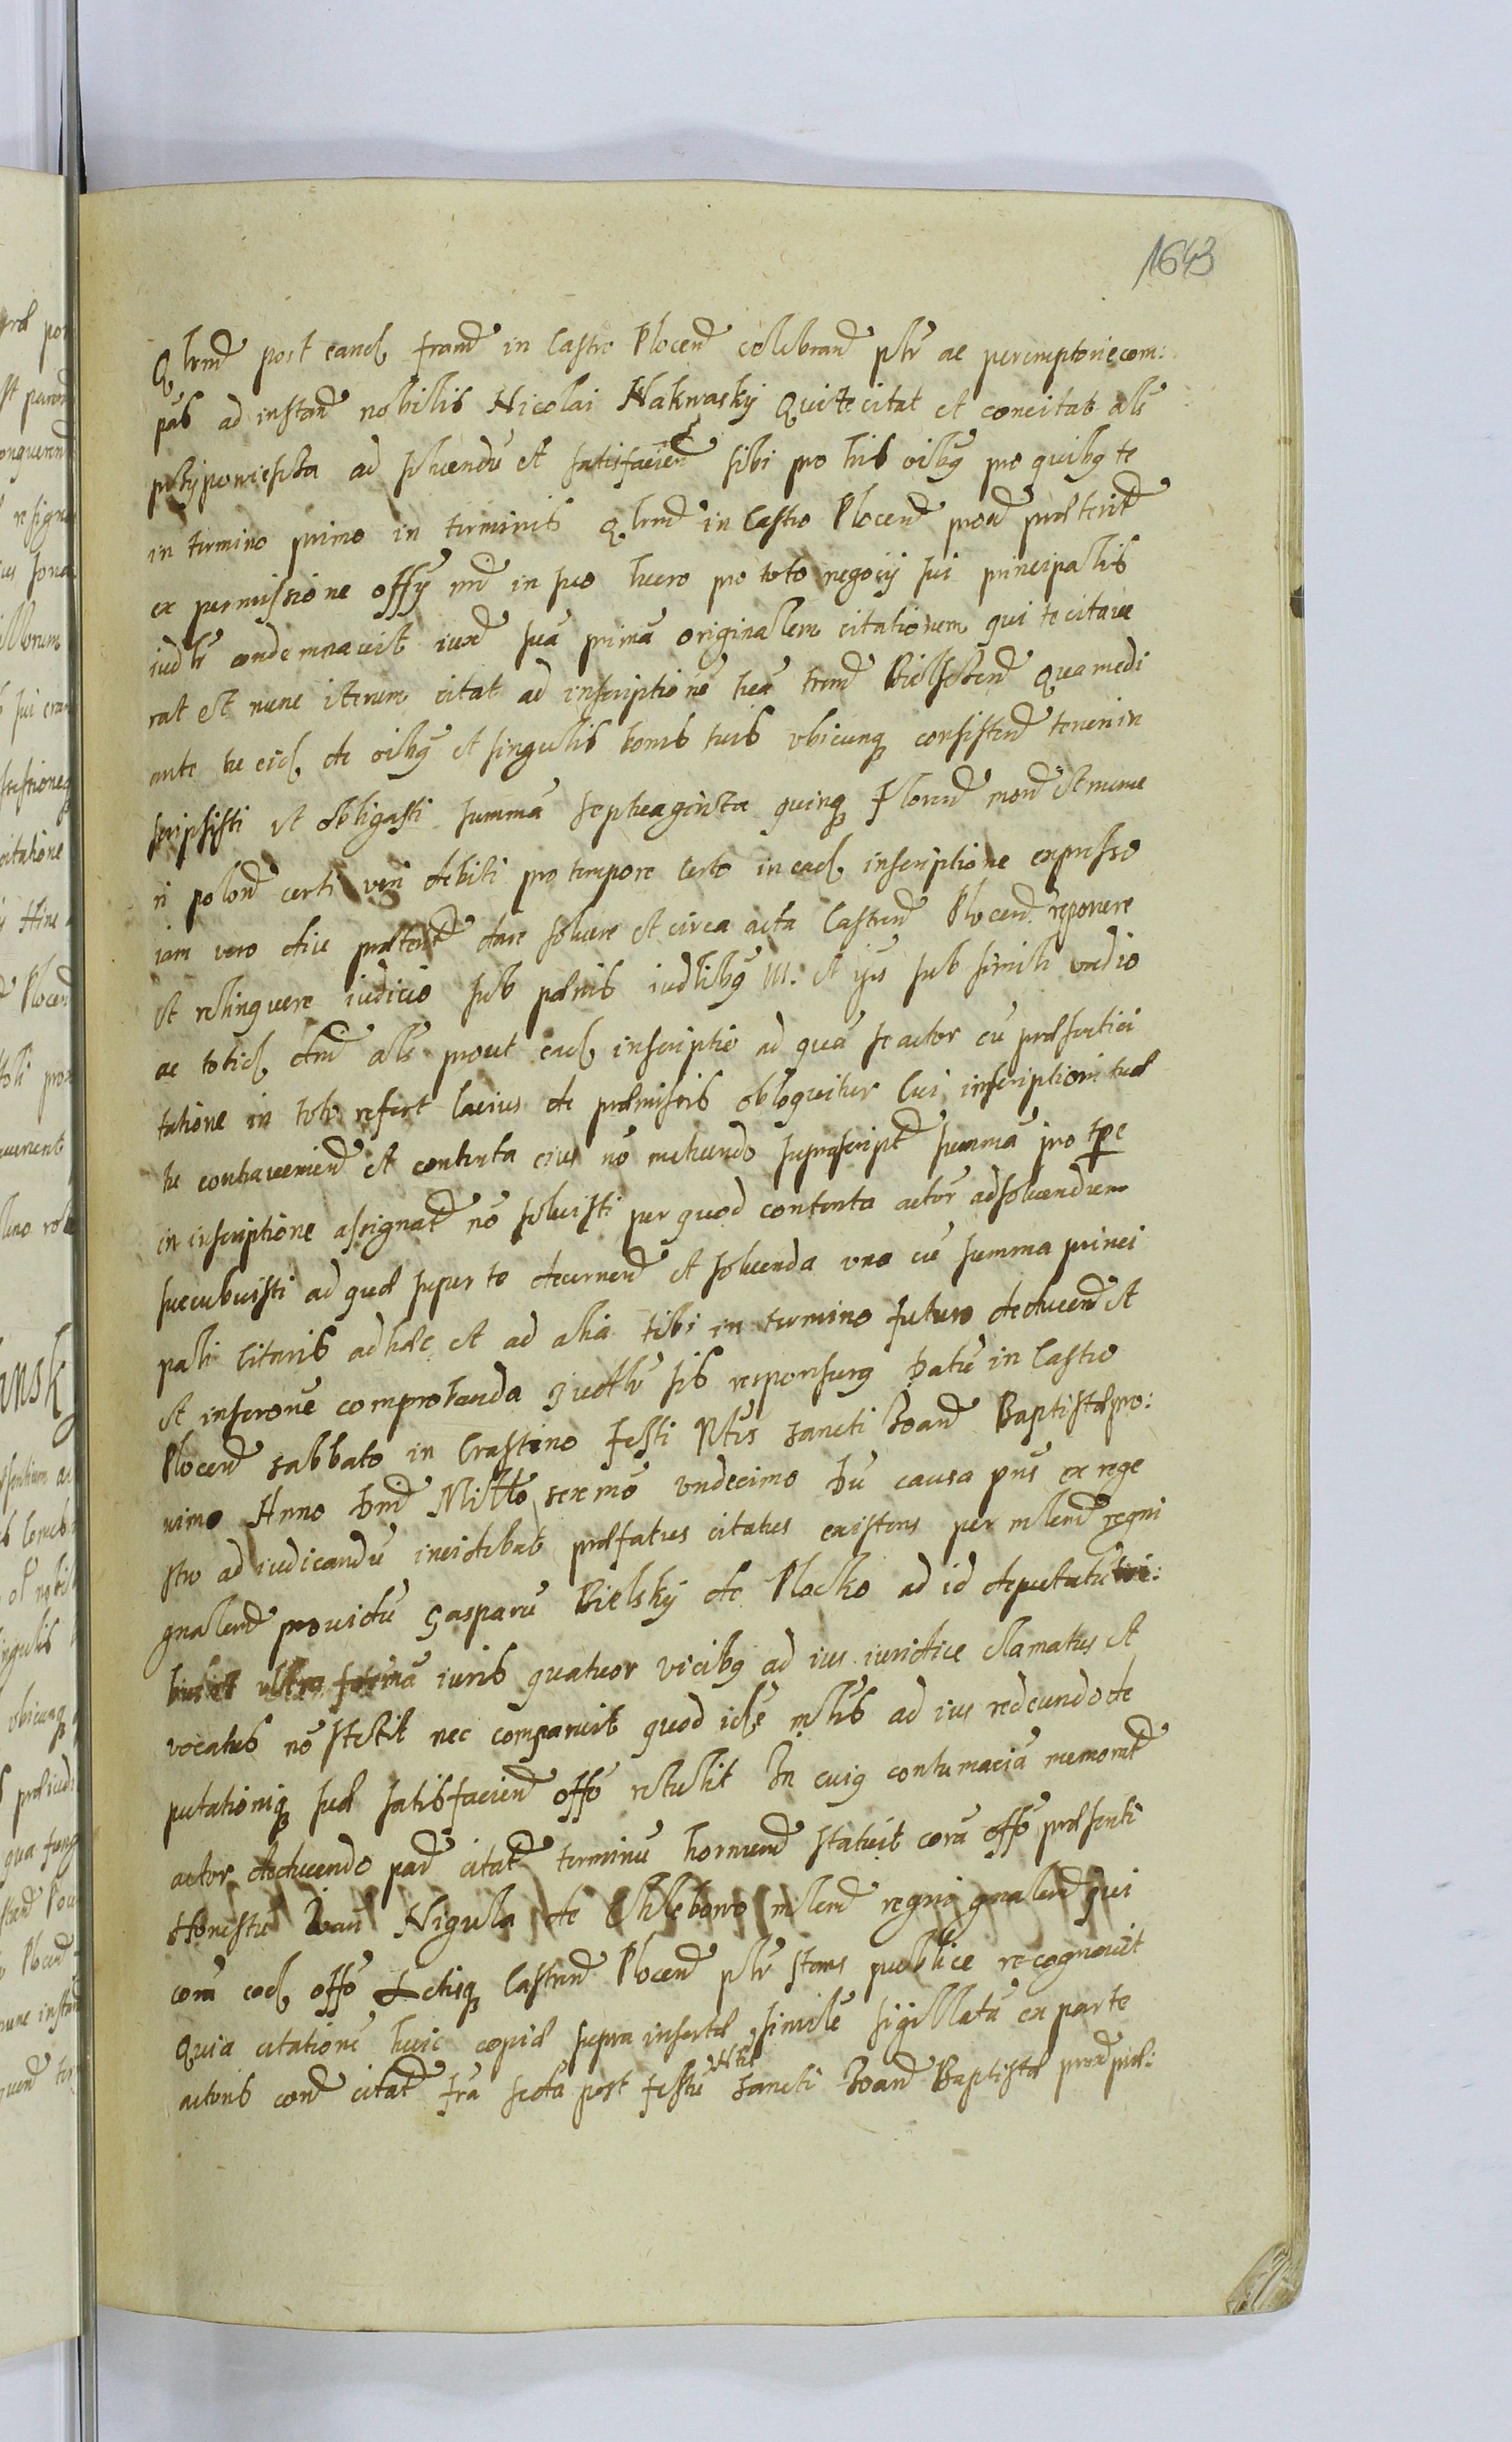 1643
Qlrnd post eand frand in Castro Plocend celebrand pltr ac peremptorie com:
pas ad instand nobilis Nicolai Nakwasky Qui te citat et concitat als
ad soluendu et satisfaciend sibi pro his oibg pro quibg te
in termino primo in terminis Qlrnd in Castro Plocend proxd præteritd
ex permissione offy nrd in suo lucro pro toto negocij sui principalis
iudtr condemnauit iuxd sua prima originalem citationem qui te citaue
rat et nunc iterum citat ad inscriptione tua trend Bielscend Qua medi
ante tu eid de oibg et singulis bonis tuis vbicunq consistend teneri in
scripsisti et obligasti summa septuaginta quinq Florend mond et nume
ri polond certi veri debiti pro tempore certo in ead inscriptione expresso
iam vero diu præteritd dare soluere et circa acta Castrend Plocend reponere
et relinquere iudicio sub pænis iudlibg III. et ijs sub simili vadio
ac totid dnd als prout ead inscriptio ad qua se actor cu præsenti ci
tatione in toto refert lacius de præmissis obloquitur Cui inscriptioni tuæ
tu contraueniend et contenta eius no metuendo suprascriptd summa pro tpre
in inscriptione assignatd no soluisti per quod contenta actor ad soluendum
succubuisti ad quæ super te decernend et soluenda vna cu summa princi
pali Citaris ad hæc et ad alia tibi in termino futuro deducend et
et inferone comprobanda Judltr sis responsurg Datu in Castro
Plocend sabbato in Crastino Festi Ntis sancti Joand Baptistæ pro:
ximo Anno Dnd Millo sexmo vndecimo Du causa pns ex rege
stro ad iudicandu incidebat præfatus citatus existens per mlend regni
gnalend prouidu Gasparu Bielsky de Plocko ad id deputatu tri:
bus et vltra forma iuris quatuor vicibg ad ius iuridice clamatus et
vocatus no stetit nec comparuit quod ide mlis ad ius redeundo de
putationiq suæ satisfaciend offo retulit In cuig contumacia memoratd
actor deducendo pard citatd terminu hornund statuit cora offo præsenti
Honestu Joan Nigula de Chlebowo mlend regni gnalend qui
cora eod offo Actisq Castrend Plocend pltr stans publice recognouit
Quia citatione huic copiæ supra insertæ simile sigillatu ex parte
actoris cond citatd fra sexta post festu Ntis sancti Joand Baptistæ proxd præ: